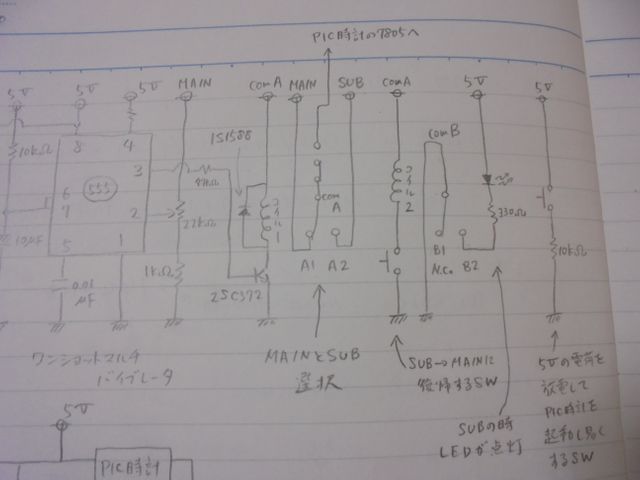 PIC時計の7805へ
5V 5V 5V MAIN comA MAIN SUB comA 5V 5V
1S1588
comB
8 4
10kΩ
3
555
47kΩ
6
7
2
コイル1
com
A
コイル2
22kΩ
330Ω
10μF
5 1
A1 A2
B1
N.C. B2
10kΩ
0.01
μF
1kΩ
2SC372
ワンショットマルチ
バイブレータ
MAINとSUB
選択
SUB→MAINに
復帰するSW
SUBの時
LEDが点灯
5Vの電荷を
放電して
PIC時計を
起動し易く
するSW
5V
PIC時計